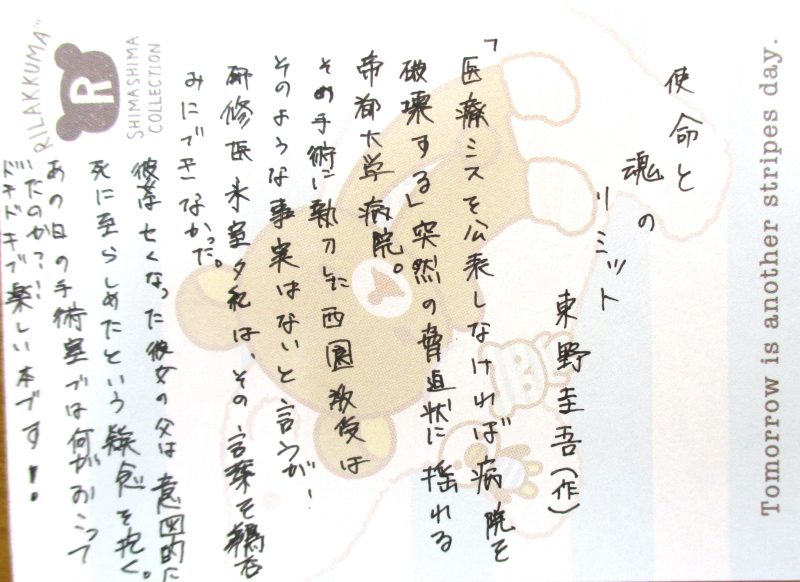 使命と
魂の
リミット
東野圭吾(作)
「医療ミスを公表しなければ病院を
破壊する」突然の脅迫状に揺れる
帝都大学病院。
その手術に執刀した西園教授は
そのような事実はないと言うが!
研修医氷室夕紀は、その言葉を鵜呑
みにできなかった。
彼女は亡くなった彼女の父は意図的に
死に至らしめたという疑念を抱く。
あの日の手術室では何がおこって
いたのか???
ドキドキで楽しい本です!!
RILAKKUMA
R
SHIMASHIMA
COLLECTION
Tomorrow is another stripes day.